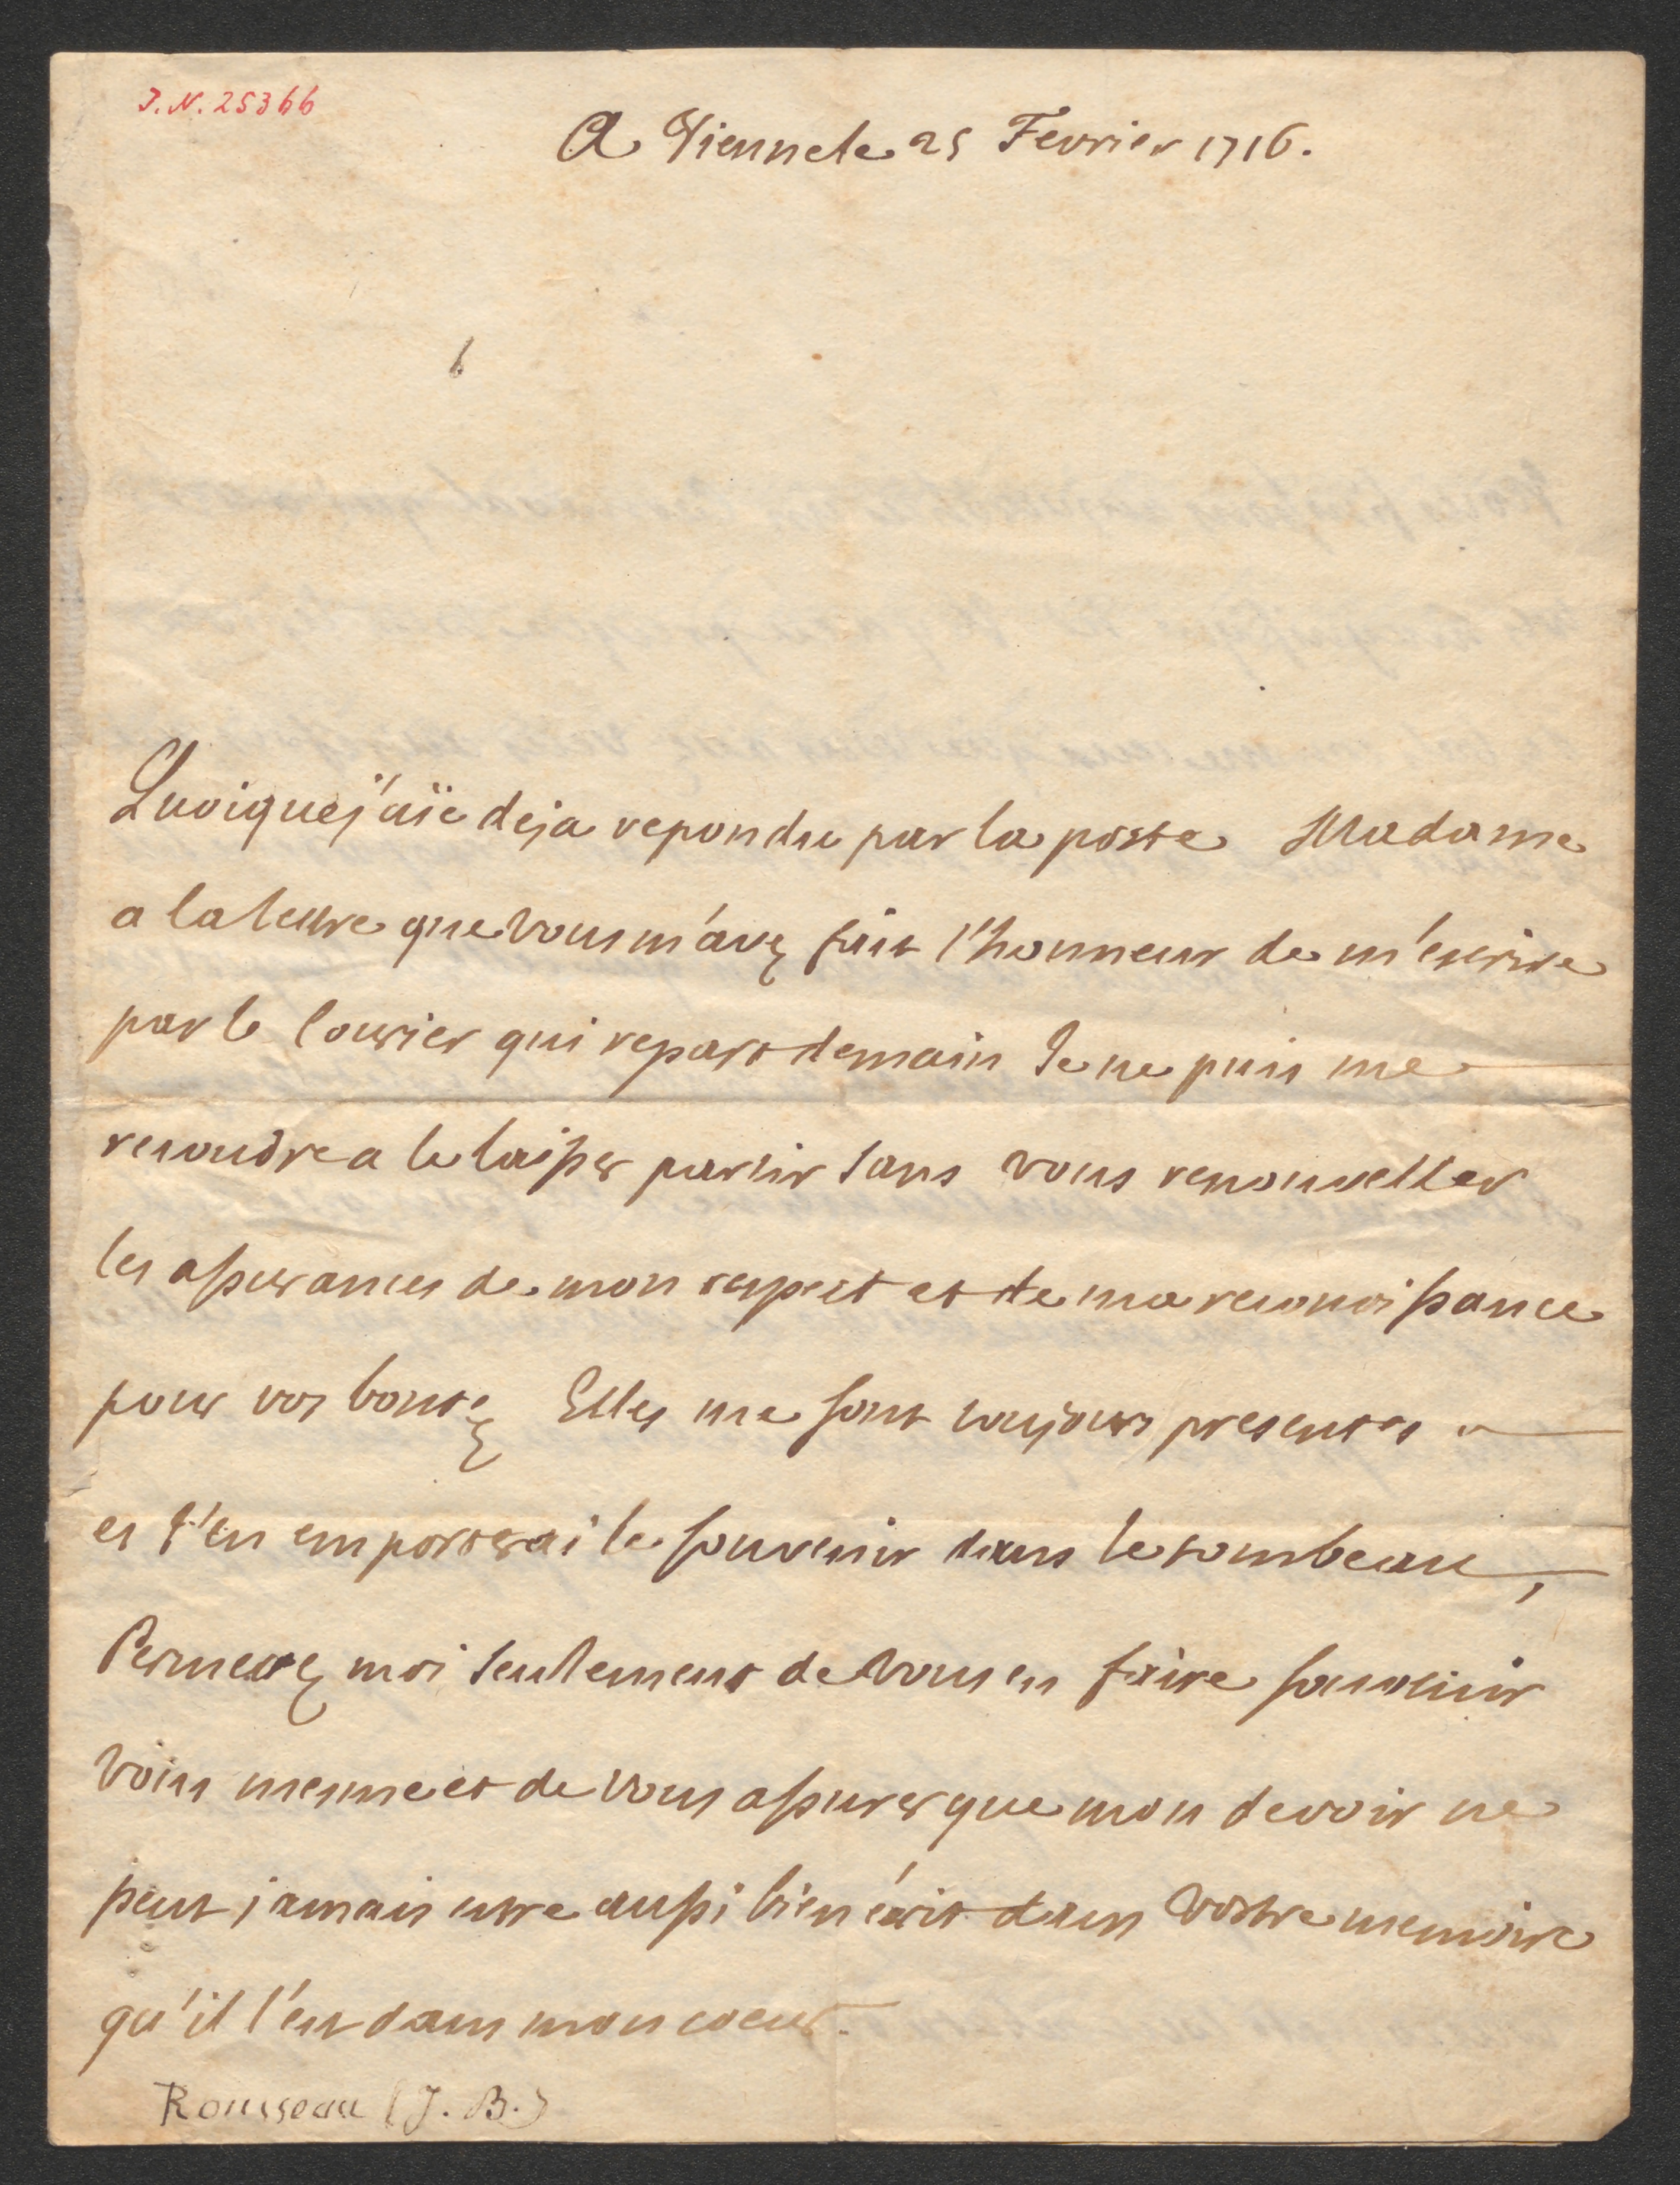 I.N. 25366
A Vienne le 25 Fevrier 1716.
Quoique j'aïe deja repondu par la poste Madame
a la lettre que vous m'avez fait l'honneur de m'escrire
par le Courier qui repart demain Je ne puis me
resoudre a le laisser partir sans vous renouveller
les assurances de mon respect et de ma reconnoissance
pour vos bontez Elles me sont toujours presentes
et j'en emporterai le souvenir dans le tombeau,
Permettez moi seulement de vous en faire souvenir
vous mesme et de vous assurer que mon devoir ne
peut jamais estre aussi bien écrit dans vostre memoire
qu'il l'est dans mon coeur.
Rousseau (J. B.)